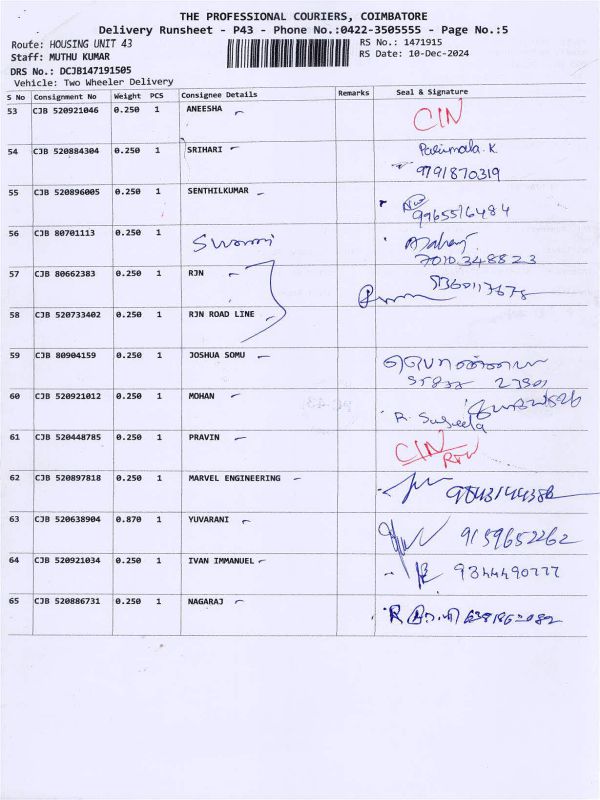 THE PROFESSIONAL COURIERS, COIMBATORE
Delivery Runsheet - P43 - Phone No.:0422-3505555 - Page No.:5
Route: HOUSING UNIT 43
RS No.: 1471915
Staff: MUTHU KUMAR
RS Date: 10-Dec-2024
DRS No.: DCJB147191505
Vehicle: Two Wheeler Delivery
S No Consignment No Weight PCS Consignee Details Remarks Seal & Signature
53 CJB 520921046 0.250 1 ANEESHA CIN
54 CJB 520884304 0.250 1 SRIHARI Parimala. K
9791870319
55 CJB 520896005 0.250 1 SENTHILKUMAR
9965516484
56 CJB 80701113 0.250 1 Swami
7010348823
57 CJB 80662383 0.250 1 RJN
58 CJB 520733402 0.250 1 RJN ROAD LINE
59 CJB 80904159 0.250 1 JOSHUA SOMU
60 CJB 520921012 0.250 1 MOHAN R. Suseela
61 CJB 520448785 0.250 1 PRAVIN CIN
62 CJB 520897818 0.250 1 MARVEL ENGINEERING
63 CJB 520638904 0.870 1 YUVARANI 9159652262
64 CJB 520921034 0.250 1 IVAN IMMANUEL 9344490777
65 CJB 520886731 0.250 1 NAGARAJ